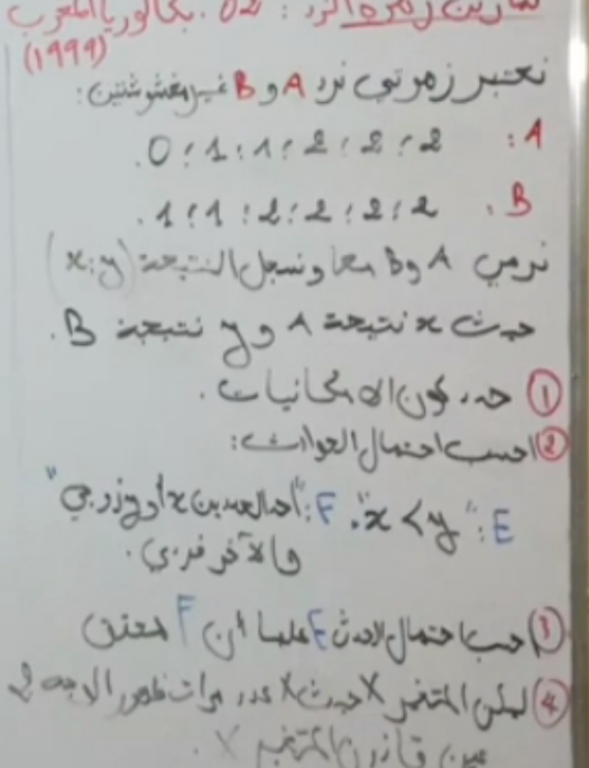 تمارين زهرة النرد : 02. بكالوريا المغرب
(1999)
نعتبر زهرتي نرد A و B غير مغشوشتين:
A: 0 ; 1 ; 1 ; 2 ; 2 ; 2.
B. 1 ; 1 ; 2 ; 2 ; 2 ; 2.
نرمي A و B معا ونسجل النتيجة (x;y)
حيث x نتيجة A و y نتيجة B.
① حدد كون الامكانيات.
② احسب احتمال الحوادث:
E: "x < y". F: "أحد العددين x أو y زوجي
والآخر فردي."
③ احسب احتمال الحدث E علما أن F محقق
④ ليكن المتغير X حيث X عدد مرات ظهور الوجه 2
عين قانون المتغير X.